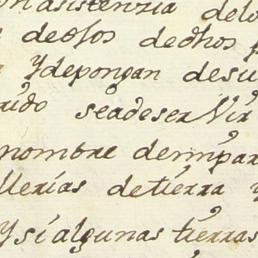 on asistenzia delo
dedhos dedhos p
Ydepongan desu
rido seadeserVir
nombre demi par
llerias de tierra y
Ysialgunas tierras